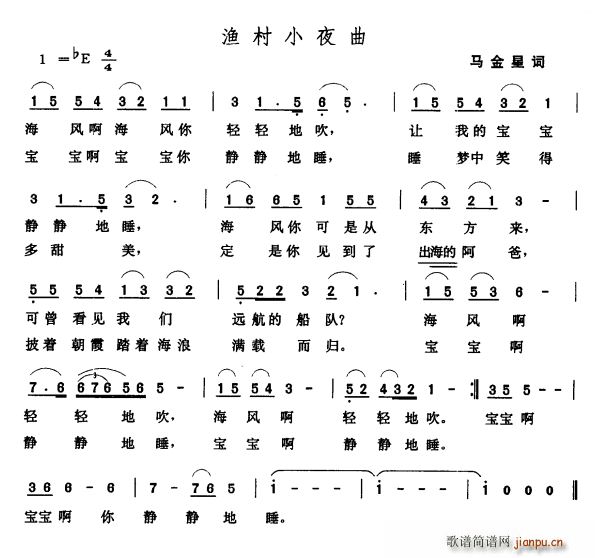 渔村小夜曲
1 =♭E 4/4
马金星 词
1 5 5 4 3 2 1 1 | 3 1 . 5 6 5 . | 1 5 5 4 3 2 1
海 风啊 海 风你 轻轻地吹， 让 我的宝宝
宝 宝啊 宝 宝你 静静地睡， 睡 梦中笑得
3 1 . 5 3 2 . | 1 6 6 5 1 5 5 | 4 3 2 1 3 -
静静地睡， 海 风你可是从 东 方来，
多甜 美， 定 是你见到了 出海的阿爸，
5 5 5 4 1 3 3 2 | 5 2 2 3 2 1 . | 1 5 5 3 6 -
可曾 看见我 们 远航的船队？ 海 风 啊
披着 朝霞踏着海浪 满载 而归。 宝 宝 啊
7 . 6 6 7 6 5 6 5 - | 1 5 5 4 3 - | 5 2 4 3 2 1 - :‖ 3 5 5 -
轻 轻地吹， 海 风 啊 轻 轻地吹。 宝宝啊
静 静地睡， 宝 宝 啊 静 静地睡。
3 6 6 - 6 - | 7 - 7 6 5 | 1 - - - | 1 - - - | 1 0 0 0 ‖
宝宝啊 你 静 静 地 睡。
歌谱简谱网
jianpu.cn